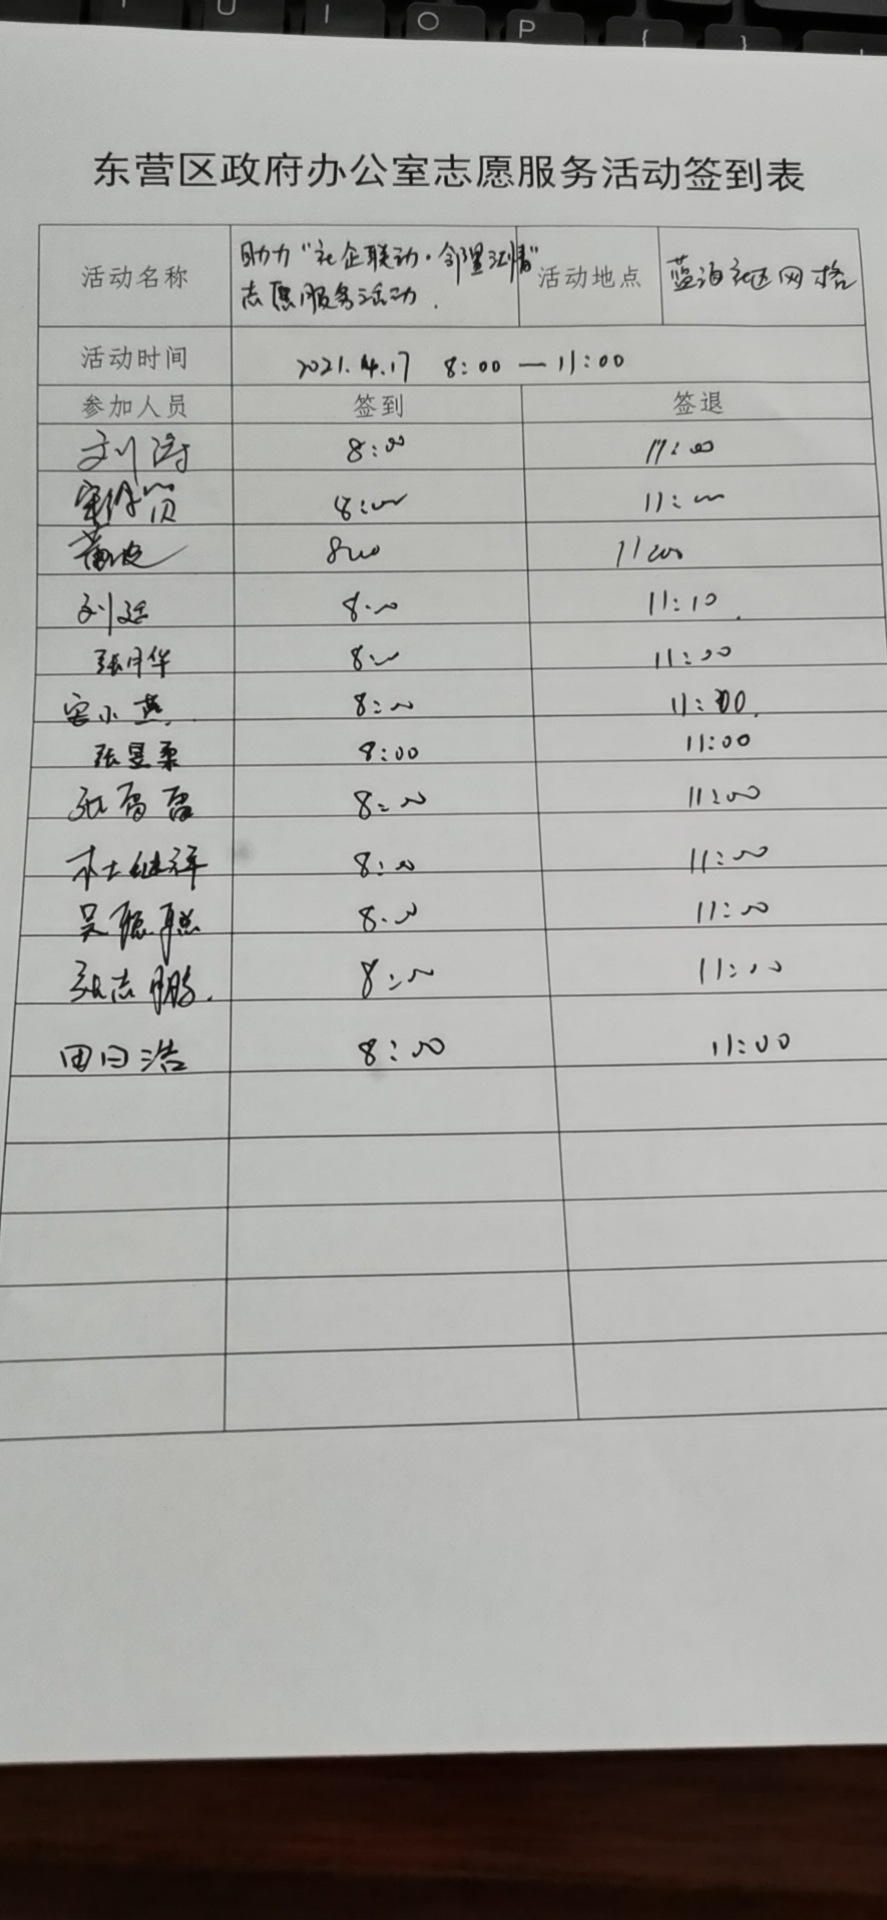 U I O P { }
东营区政府办公室志愿服务活动签到表
活动名称 助力“社企联动·邻里汇情” 活动地点 蓝海社区网格
志愿服务活动.
活动时间 2021.4.17 8:00 — 11:00
参加人员 签到 签退
刘涛 8:00 11:00
8:00 11:00
8:00 11:00
刘廷 8:00 11:10
张月华 8:00 11:00
小燕 8:00 11:00
张昱柔 8:00 11:00
张雷雷 8:00 11:00
杜继祥 8:00 11:00
吴聪聪 8:00 11:00
张志鹏. 8:00 11:00
田曰浩 8:00 11:00